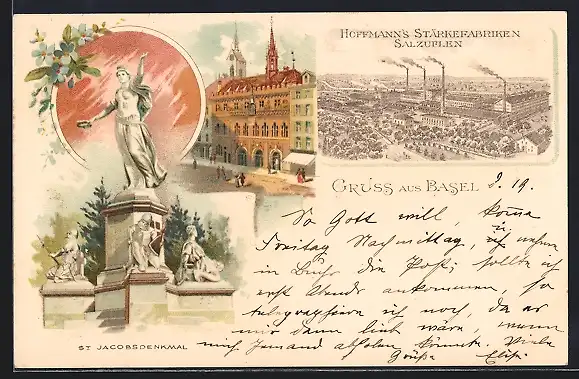 HOFFMANN'S STÄRKEFABRIKEN
SALZUFLEN
GRUSS AUS BASEL
So Gott will komme
Freitag Nachmittag,
in die Post; sollte ich
erst Abends ankommen, so
telegraphiere ich noch, da es
mir dann lieb wäre, wenn
mich Jemand abholen könnte. Viele
Grüße
ST. JACOBSDENKMAL